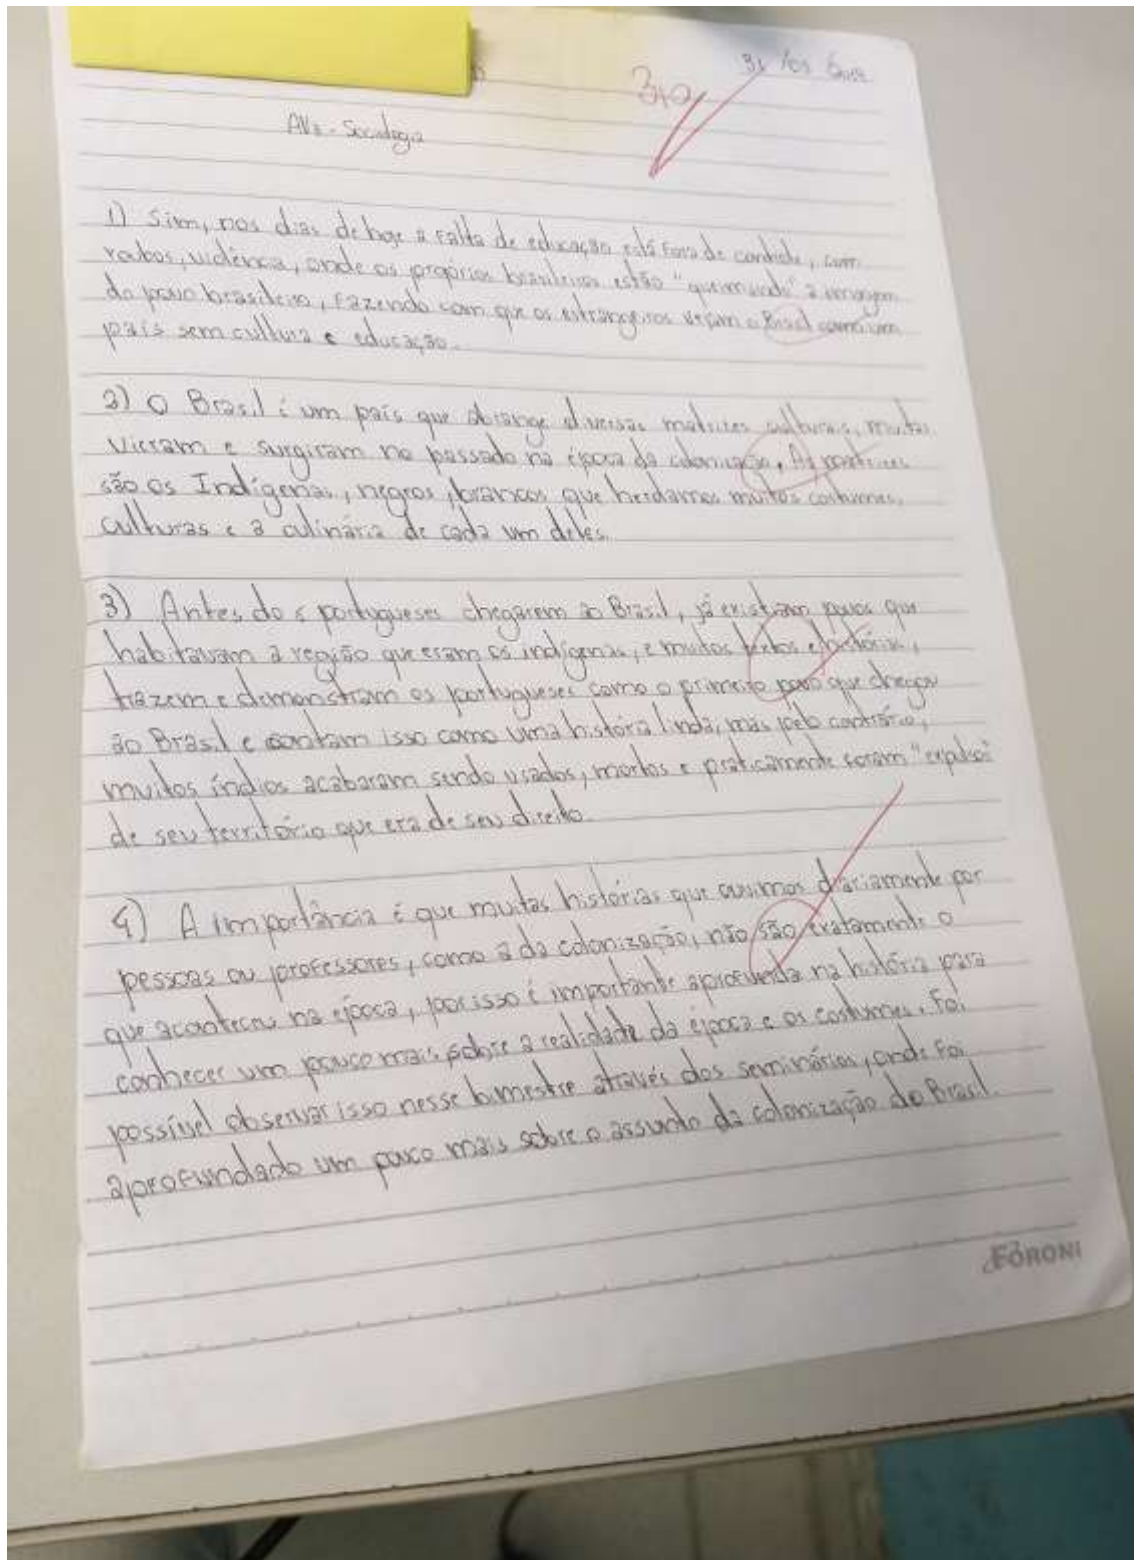 3,0
AV2 - Sociologia
1) Sim, nos dias de hoje a falta de educação está fora de controle, com
roubos, violência, onde os próprios brasileiros estão "queimando" a imagem
do povo brasileiro, fazendo com que os estrangeiros vejam o Brasil como um
país sem cultura e educação.
2) O Brasil é um país que abrange diversas matrizes culturais, muitas
vieram e surgiram no passado na época da colonização. As matrizes
são os Indígenas, negros, brancos que herdamos muitos costumes,
culturas e a culinária de cada um deles.
3) Antes dos portugueses chegarem ao Brasil, já existiam povos que
habitavam a região que eram os indígenas, e muitos textos e histórias,
trazem e demonstram os portugueses como o primeiro povo que chegou
ao Brasil e contam isso como uma história linda, mas pelo contrário,
muitos índios acabaram sendo usados, mortos e praticamente foram "expulsos"
de seu território que era de seu direito.
4) A importância é que muitas histórias que ouvimos diariamente por
pessoas ou professores, como a da colonização, não são exatamente o
que aconteceu na época, por isso é importante aprofunda na história para
conhecer um pouco mais sobre a realidade da época e os costumes. Foi
possível observar isso nesse bimestre através dos seminários, onde foi
aprofundado um pouco mais sobre o assunto da colonização do Brasil.
FORONI